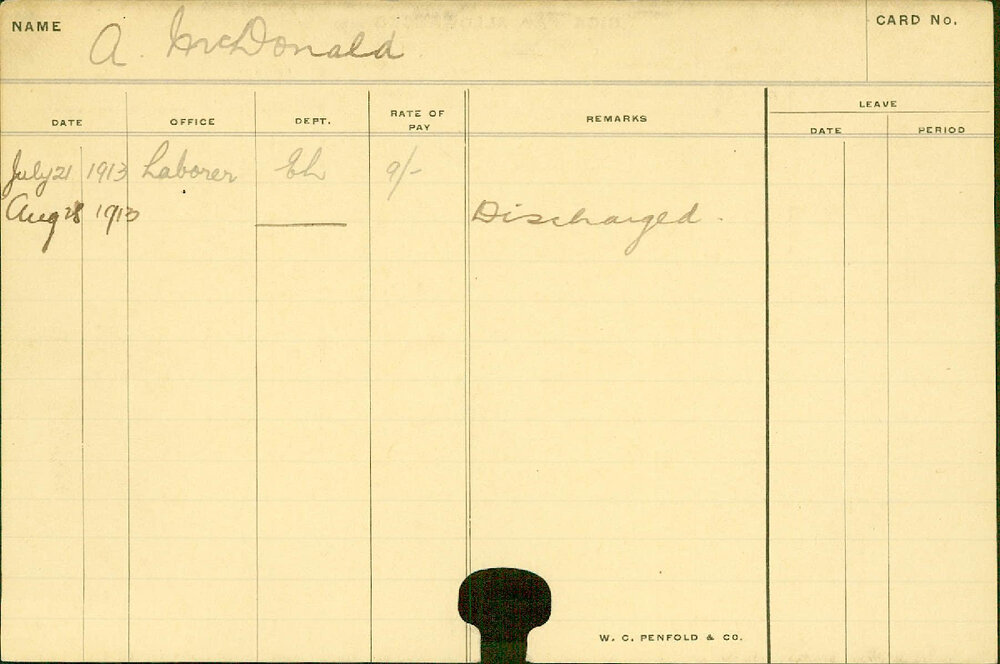 NAME A. McDonald CARD No.
LEAVE
DATE OFFICE DEPT. RATE OF PAY REMARKS DATE PERIOD
July 21 1913 Laborer 9/-
Aug 28 1913 Discharged.
W. C. PENFOLD & CO.